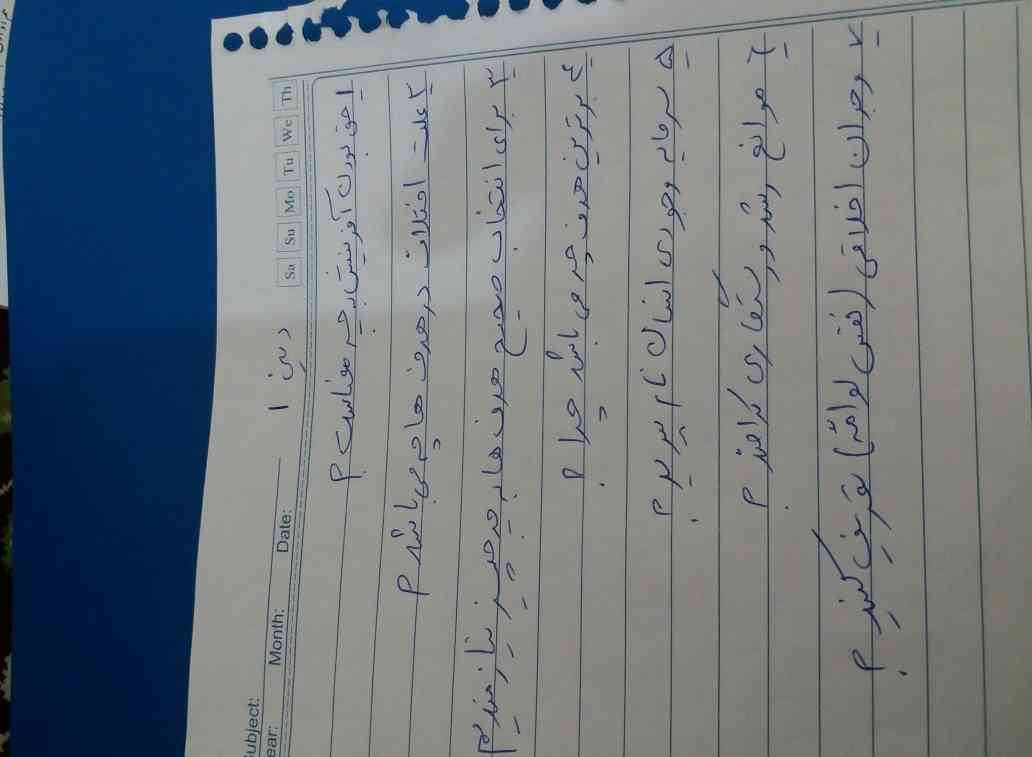 Subject:
ear: Month: Date:
Sa Su Mo Tu We Th
دینی ۱
۱ حق بودن آفرینش به چه معناست؟
۲ علت اختلاف در هدف ها چه می باشد؟
۳ برای انتخاب صحیح هدف ها به چه چیز نیازمندیم
۴ برترین هدف چه می باشد چرا؟
۵ سرمایه وجودی انسان نام ببرید؟
۶ موانع رشد و رستگاری کدامند؟
۷ وجدان اخلاقی (نفس لوامّه) تعریف کنید؟